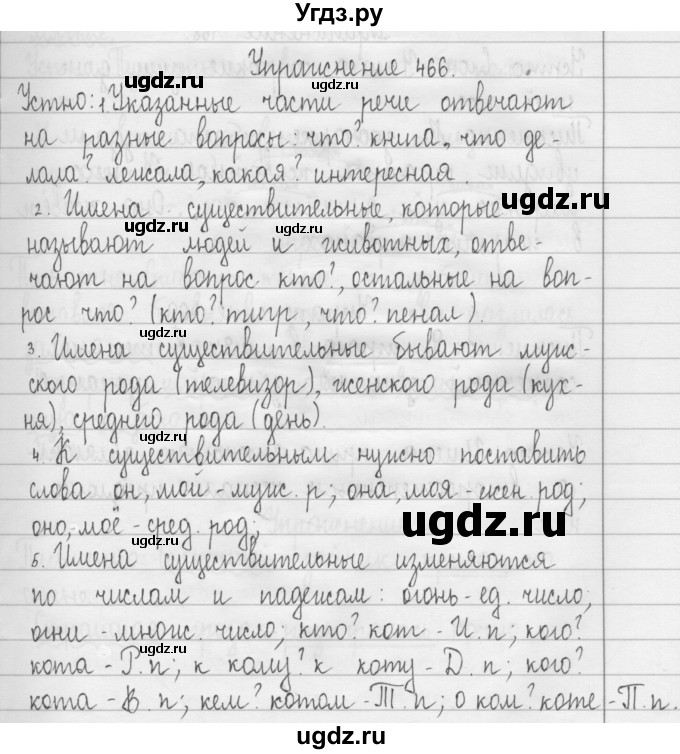 Угдз.ру
Упражнение 466.
Устно: 1. Указанные части речи отвечают
на разные вопросы: что? книга, что де-
лала? лежала, какая? интересная
2. Имена существительные, которые
называют людей и животных, отве-
чают на вопрос кто?, остальные на воп-
рос что? (кто? тигр, что? пенал).
3. Имена существительные бывают муж-
ского рода (телевизор), женского рода (кух-
ня), среднего рода (день).
4. К существительным нужно поставить
слова он, мой - муж. р; она, моя - жен. род;
оно, моё - сред. род;
5. Имена существительные изменяются
по числам и падежам: огонь - ед. число;
огни - множ. число; кто? кот - И. п; кого?
кота - Р. п; к кому? к коту - Д. п; кого?
кота - В. п; кем? котом - Т. п; о ком? коте - П. п.
ugdz.ru
ugdz.ru
ugdz.ru
ugdz.ru
ugdz.ru
ugdz.ru
ugdz.ru
ugdz.ru
ugdz.ru
ugdz.ru